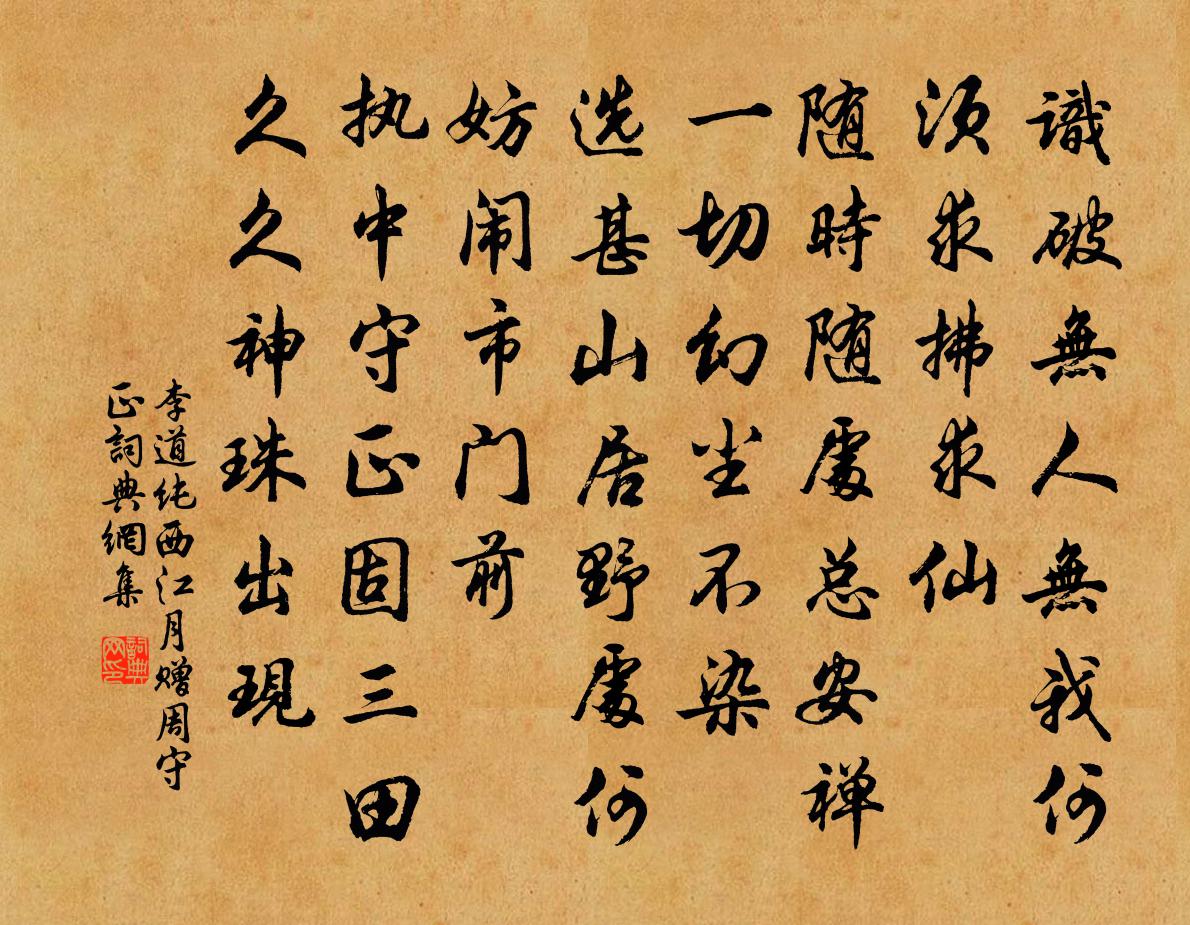 識破無人無我何
须求拂求仙
随時随處总安禅
一切幻尘不染
选甚山居野處何
妨闹市门前
执中守正固三田
久久神珠出現
李道纯西江月赠周守
正詞典網集
詞典
网印